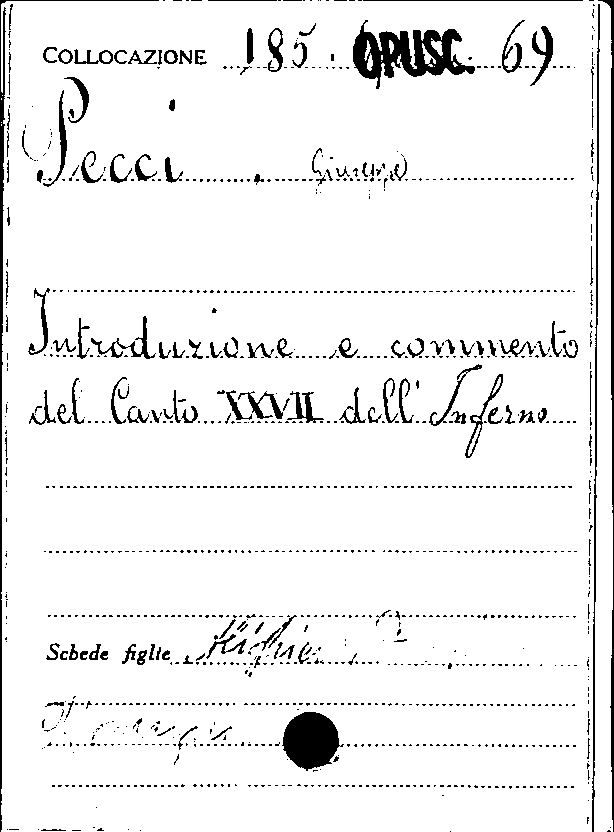 COLLOCAZIONE 185. OPUSC. 69
Pecci. Giuseppe
Introduzione e commento
del Canto XXVII dell'Inferno
Schede figlie